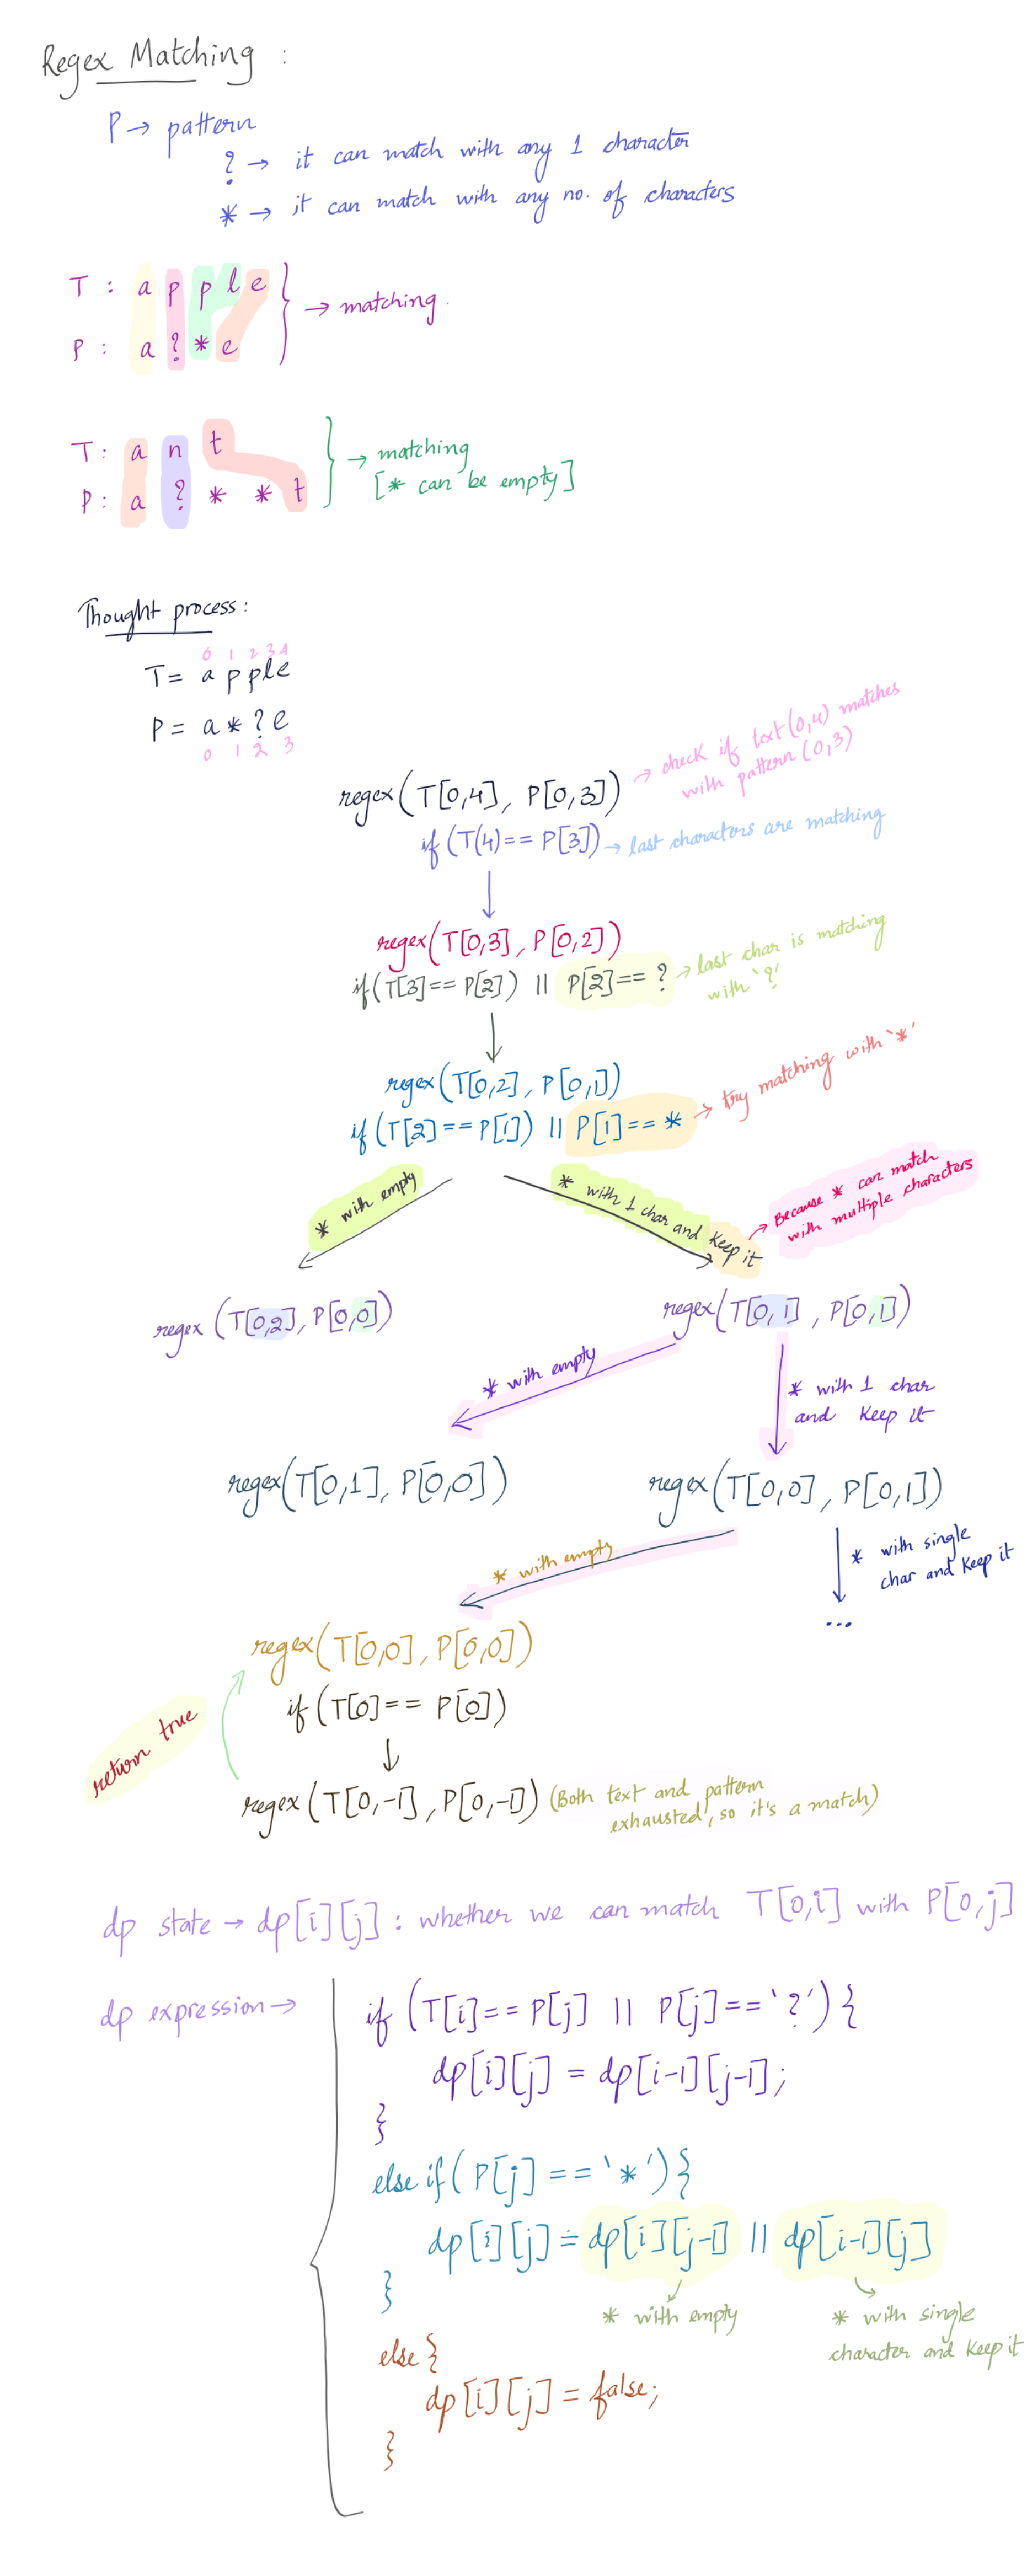 Regex Matching :
P → pattern
? → it can match with any 1 character
* → it can match with any no. of characters
T : a p p l e
→ matching.
P : a ? * e
T : a n t
→ matching
P : a ? * * t
[* can be empty]
Thought process :
0 1 2 3 4
T = a p p l e
P = a * ? e
0 1 2 3
regex(T[0,4], P[0,3]) → check if text(0,4) matches
with pattern (0,3)
if (T(4) == P[3]) → last characters are matching
regex(T[0,3], P[0,2])
if (T[3] == P[2]) || P[2] == ? → last char is matching
with '?'
regex(T[0,2], P[0,1])
if (T[2] == P[1]) || P[1] == * → try matching with '*'
* with empty
* with 1 char and keep it
→ Because * can match
with multiple characters
regex (T[0,2], P[0,0])
regex(T[0,1], P[0,1])
* with empty
* with 1 char
and keep it
regex(T[0,1], P[0,0])
regex(T[0,0], P[0,1])
* with empty
* with single
char and keep it
...
regex(T[0,0], P[0,0])
if (T[0] == P[0])
return true
regex(T[0,-1], P[0,-1]) (Both text and pattern
exhausted, so it's a match)
dp state → dp[i][j] : whether we can match T[0,i] with P[0,j]
dp expression →
if (T[i] == P[j] || P[j] == '?') {
dp[i][j] = dp[i-1][j-1];
}
else if (P[j] == '*') {
dp[i][j] = dp[i][j-1] || dp[i-1][j]
}
* with empty
* with single
character and keep it
else {
dp[i][j] = false;
}